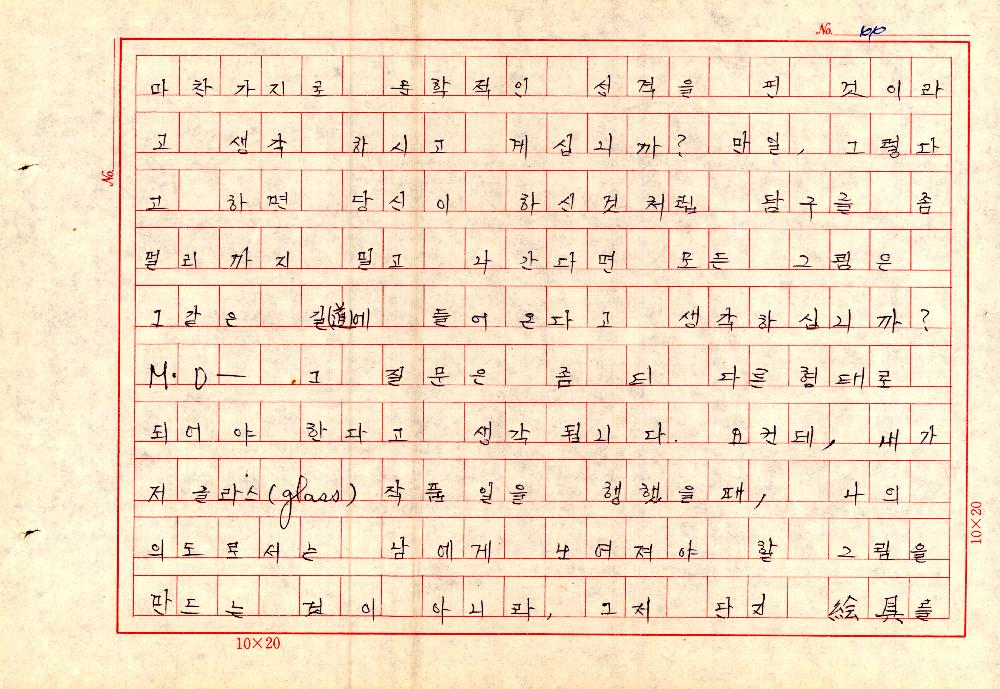 No. 
마찬가지로 문학적인 성격을 띤 것이라
고 생각하시고 계십니까? 만일, 그렇다
고 하면 당신이 하신것처럼 탐구를 좀
멀리까지 밀고 나간다면 모든 그림은
그같은 길(道)에 들어온다고 생각하십니까?
M.D— 그 질문은 좀 더 다른 형태로
되어야 한다고 생각됩니다. 요컨데, 내가
저 글라스(glass) 작품일을 행했을때, 나의
의도로서는 남에게 보여져야 할 그림을
만드는 것이 아니라, 그저 단지 絵具를
No.
10×20
10×20